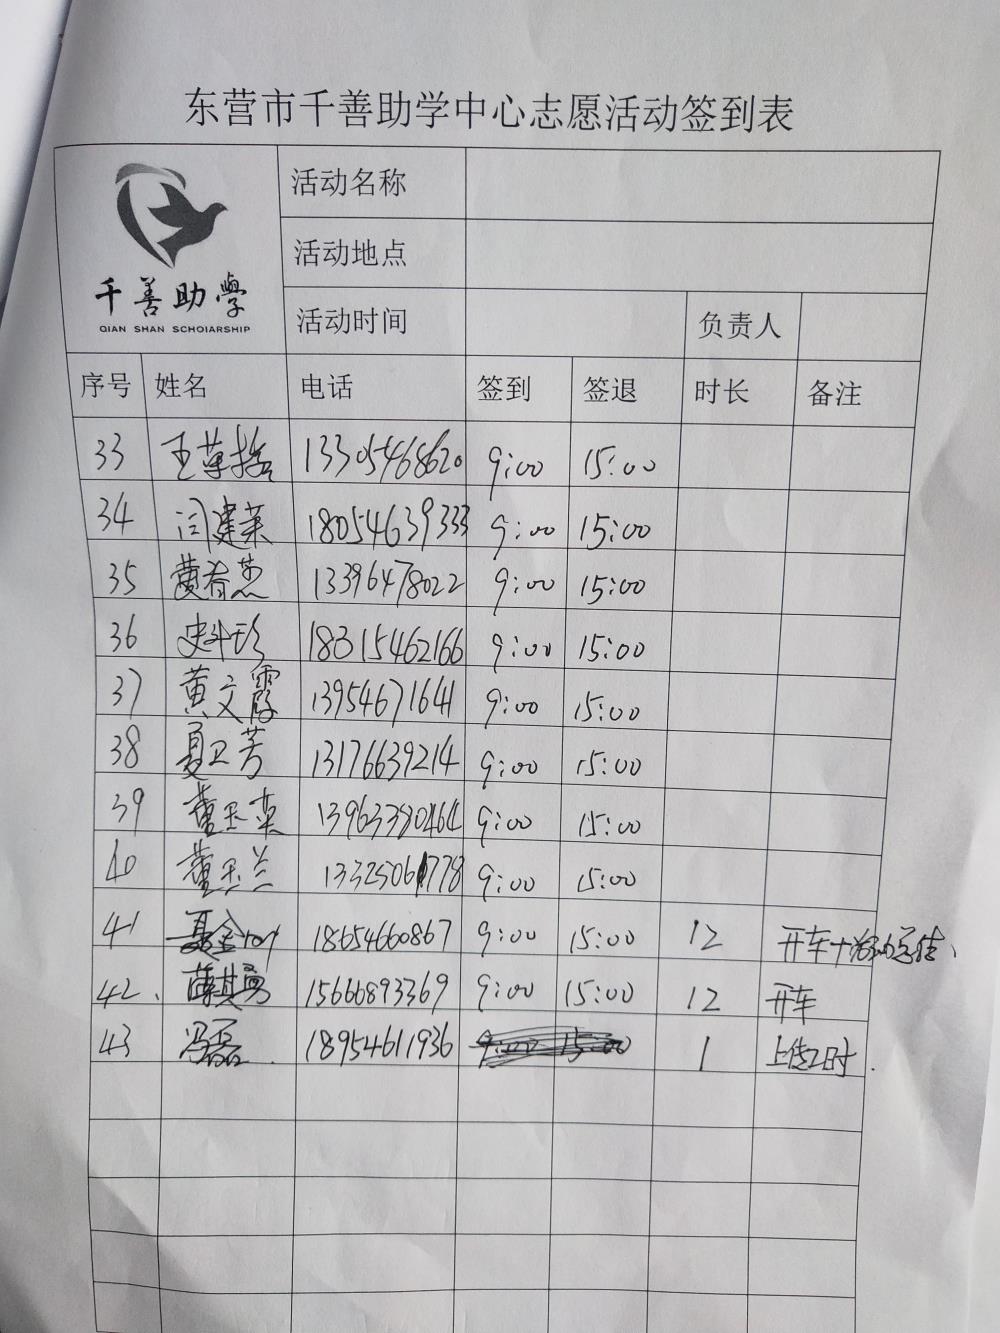 东营市千善助学中心志愿活动签到表
千善助學
QIAN SHAN SCHOIARSHIP
活动名称
活动地点
活动时间 负责人
序号 姓名 电话 签到 签退 时长 备注
33 13305468620 9:00 15:00
34 闫建英 18054639333 9:00 15:00
35 黄春燕 13396478022 9:00 15:00
36 18315462166 9:00 15:00
37 黄文霞 13954671641 9:00 15:00
38 夏卫芳 13176639214 9:00 15:00
39 董玉英 13963380464 9:00 15:00
40 董玉兰 13325061778 9:00 15:00
41 18654660867 9:00 15:00 12 开车+
42. 薛其勇 15666893369 9:00 15:00 12 开车
43 冯磊 18954611936 9:00 15:00 1 上传工时.